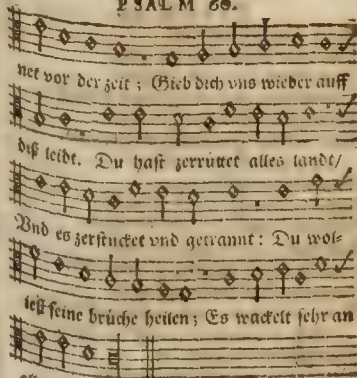 PSALM 60.
net vor der zeit ; Gieb dich vns wieder auff
diß leidt. Du hast zerrüttet alles landt/
Vnd es zerstucket vnd getrannt : Du wol-
lest seine brüche heilen ; Es wackelt sehr an